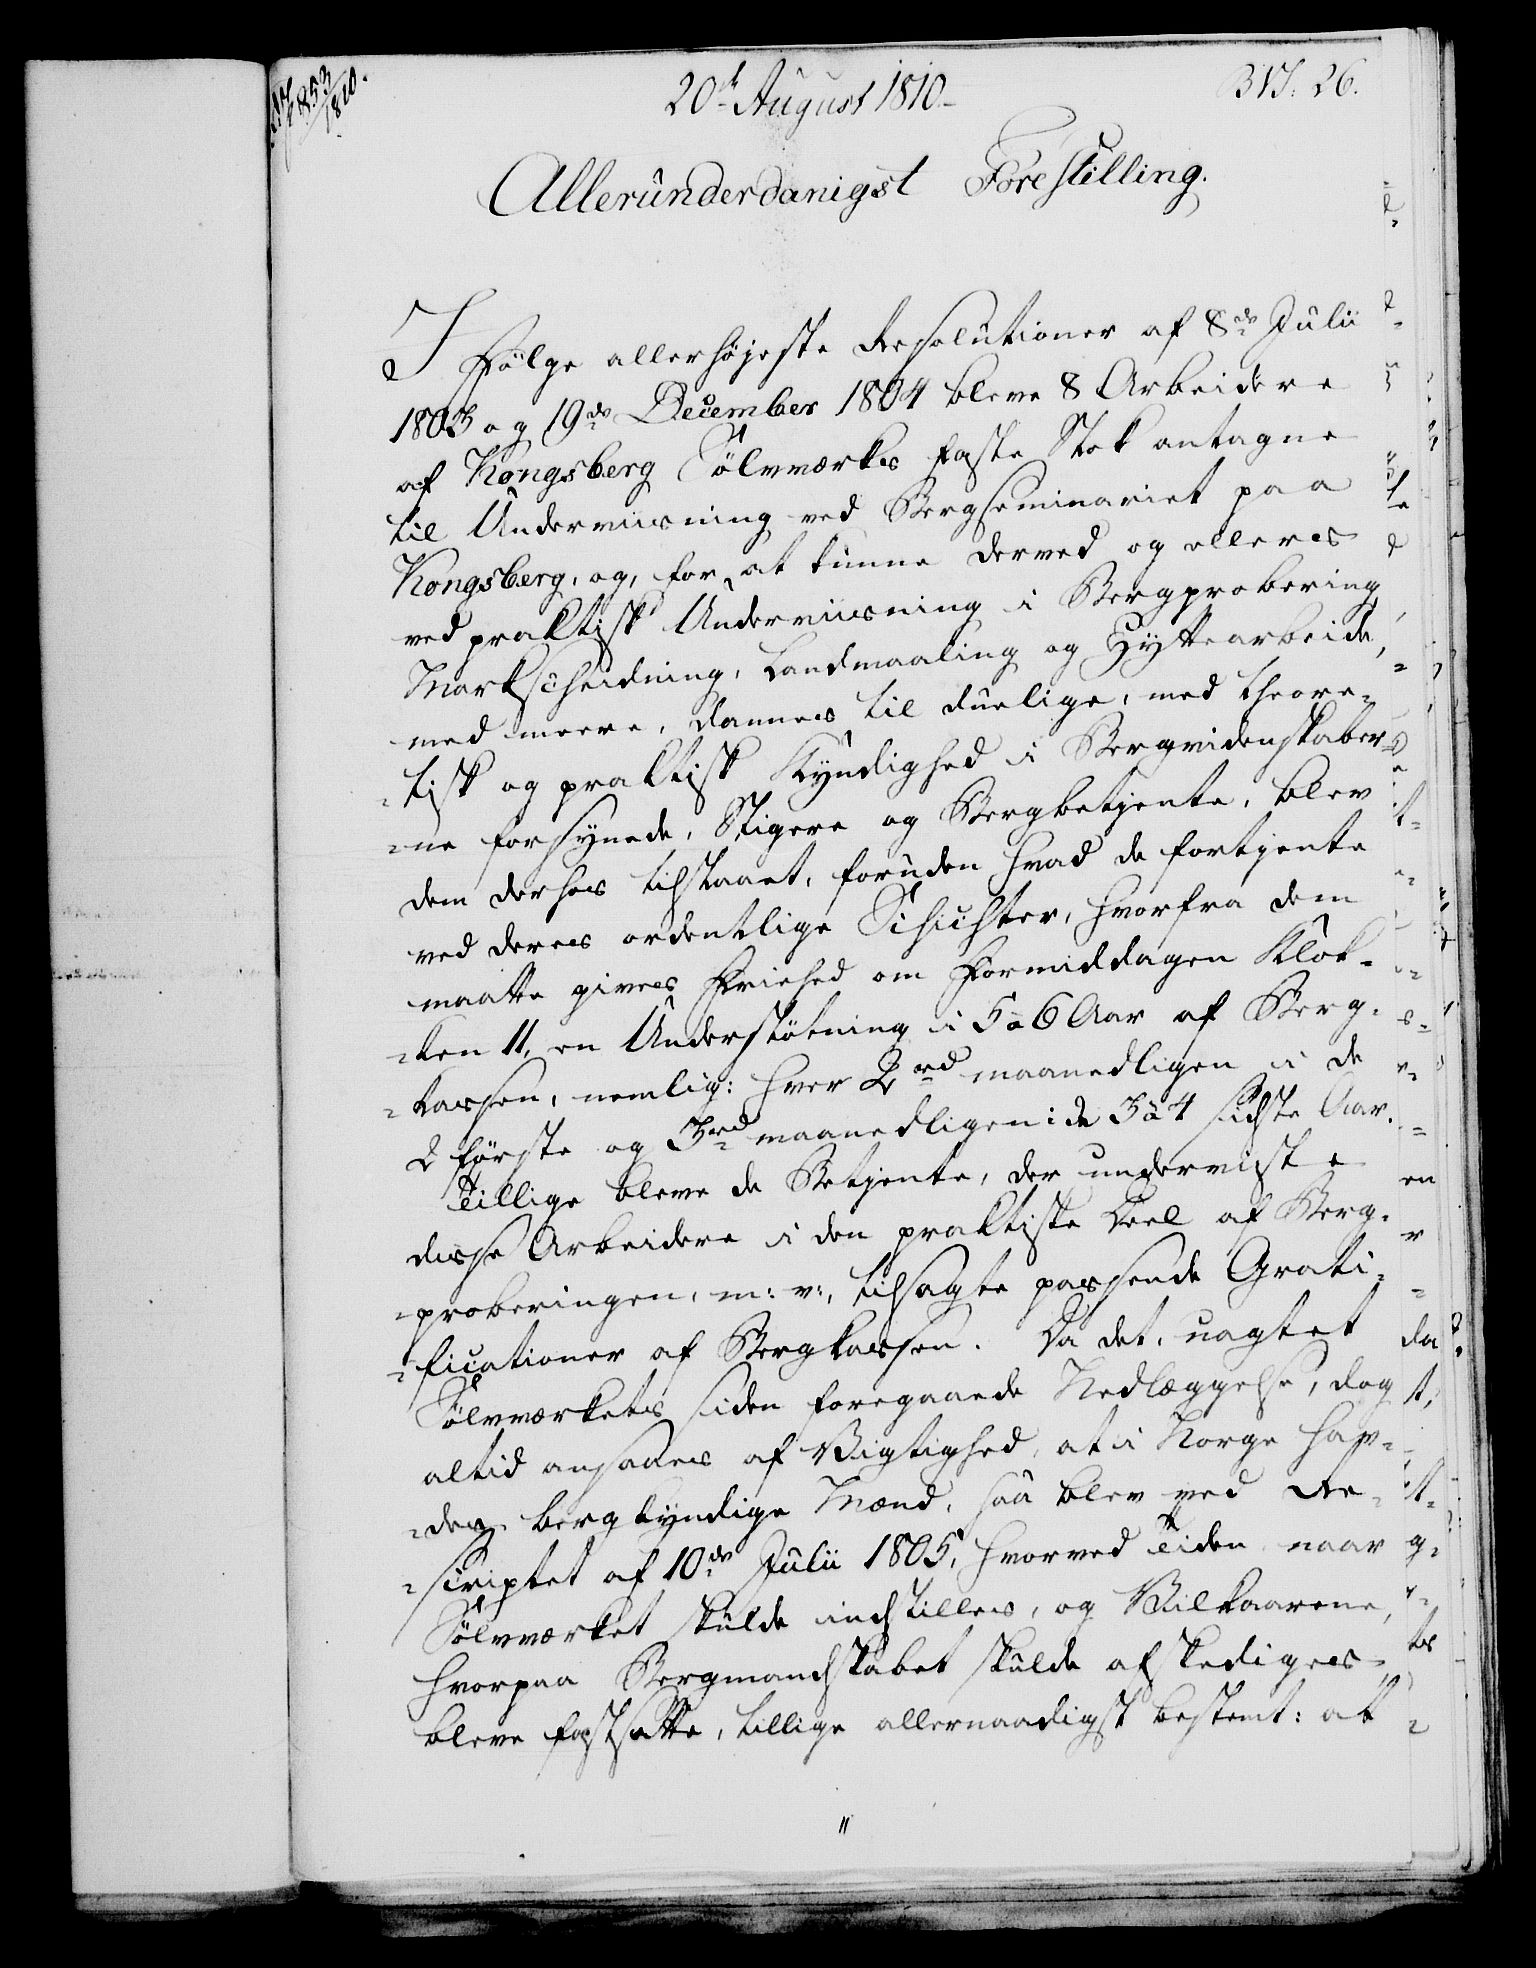 1853/1810.
20de August 1810.
B Vf: 26.
Allerunderdanigst Forestilling.
I Følge allerhøjeste Resolutioner af 8de Julii
1803 og 19de December 1804 bleve 8 Arbeidere
af Kongsberg Sølvværks faste Stok antagne
til Underviisning ved Bergseminariet paa
Kongsberg, og, for at kunne derved og ellers
ved praktisk Underviisning i Bergprobering
Markscheidning, Landmaaling og Hyttearbeide,
med meere, dannes til duelige, med theore-
-tisk og praktisk Kyndighed i Bergvidenskaber-
-ne forsynede, Stigere og Bergbetjente, blev
dem derhos tilstaaet, foruden hvad de fortjente
ved deres ordentlige Schichter, hvorfra dem
maatte gives Friehed om Formiddagen Klok-
-ken 11, en Understøtning i 5 a 6 Aar af Berg-
-kassen, nemlig: hver 2 rd maanedligen i de
2 første og 3 rd maanedligen i de 3 à 4 sidste Aar.
Tillige bleve de Betjente, der underviste
disse Arbeidere i den praktiske Deel af Berg-
-proberingen, m: v:, tilsagte passende Grati-
-ficationer af Bergkassen. Da det, uagtet
Sølvværkets siden foregaaede Nedlæggelse, dog
altid ansaaes af Vigtighed, at i Norge hav-
-des bergkyndige Mænd, saa blev ved Re-
-scriptet af 10de Julii 1805, hvorved Tiden naar
Sølvværket skulde indstilles, og Vilkaarene,
hvorpaa Bergmandskabet skulde afskediges
bleve fastsatte, tillige allernaadigst bestemt: at